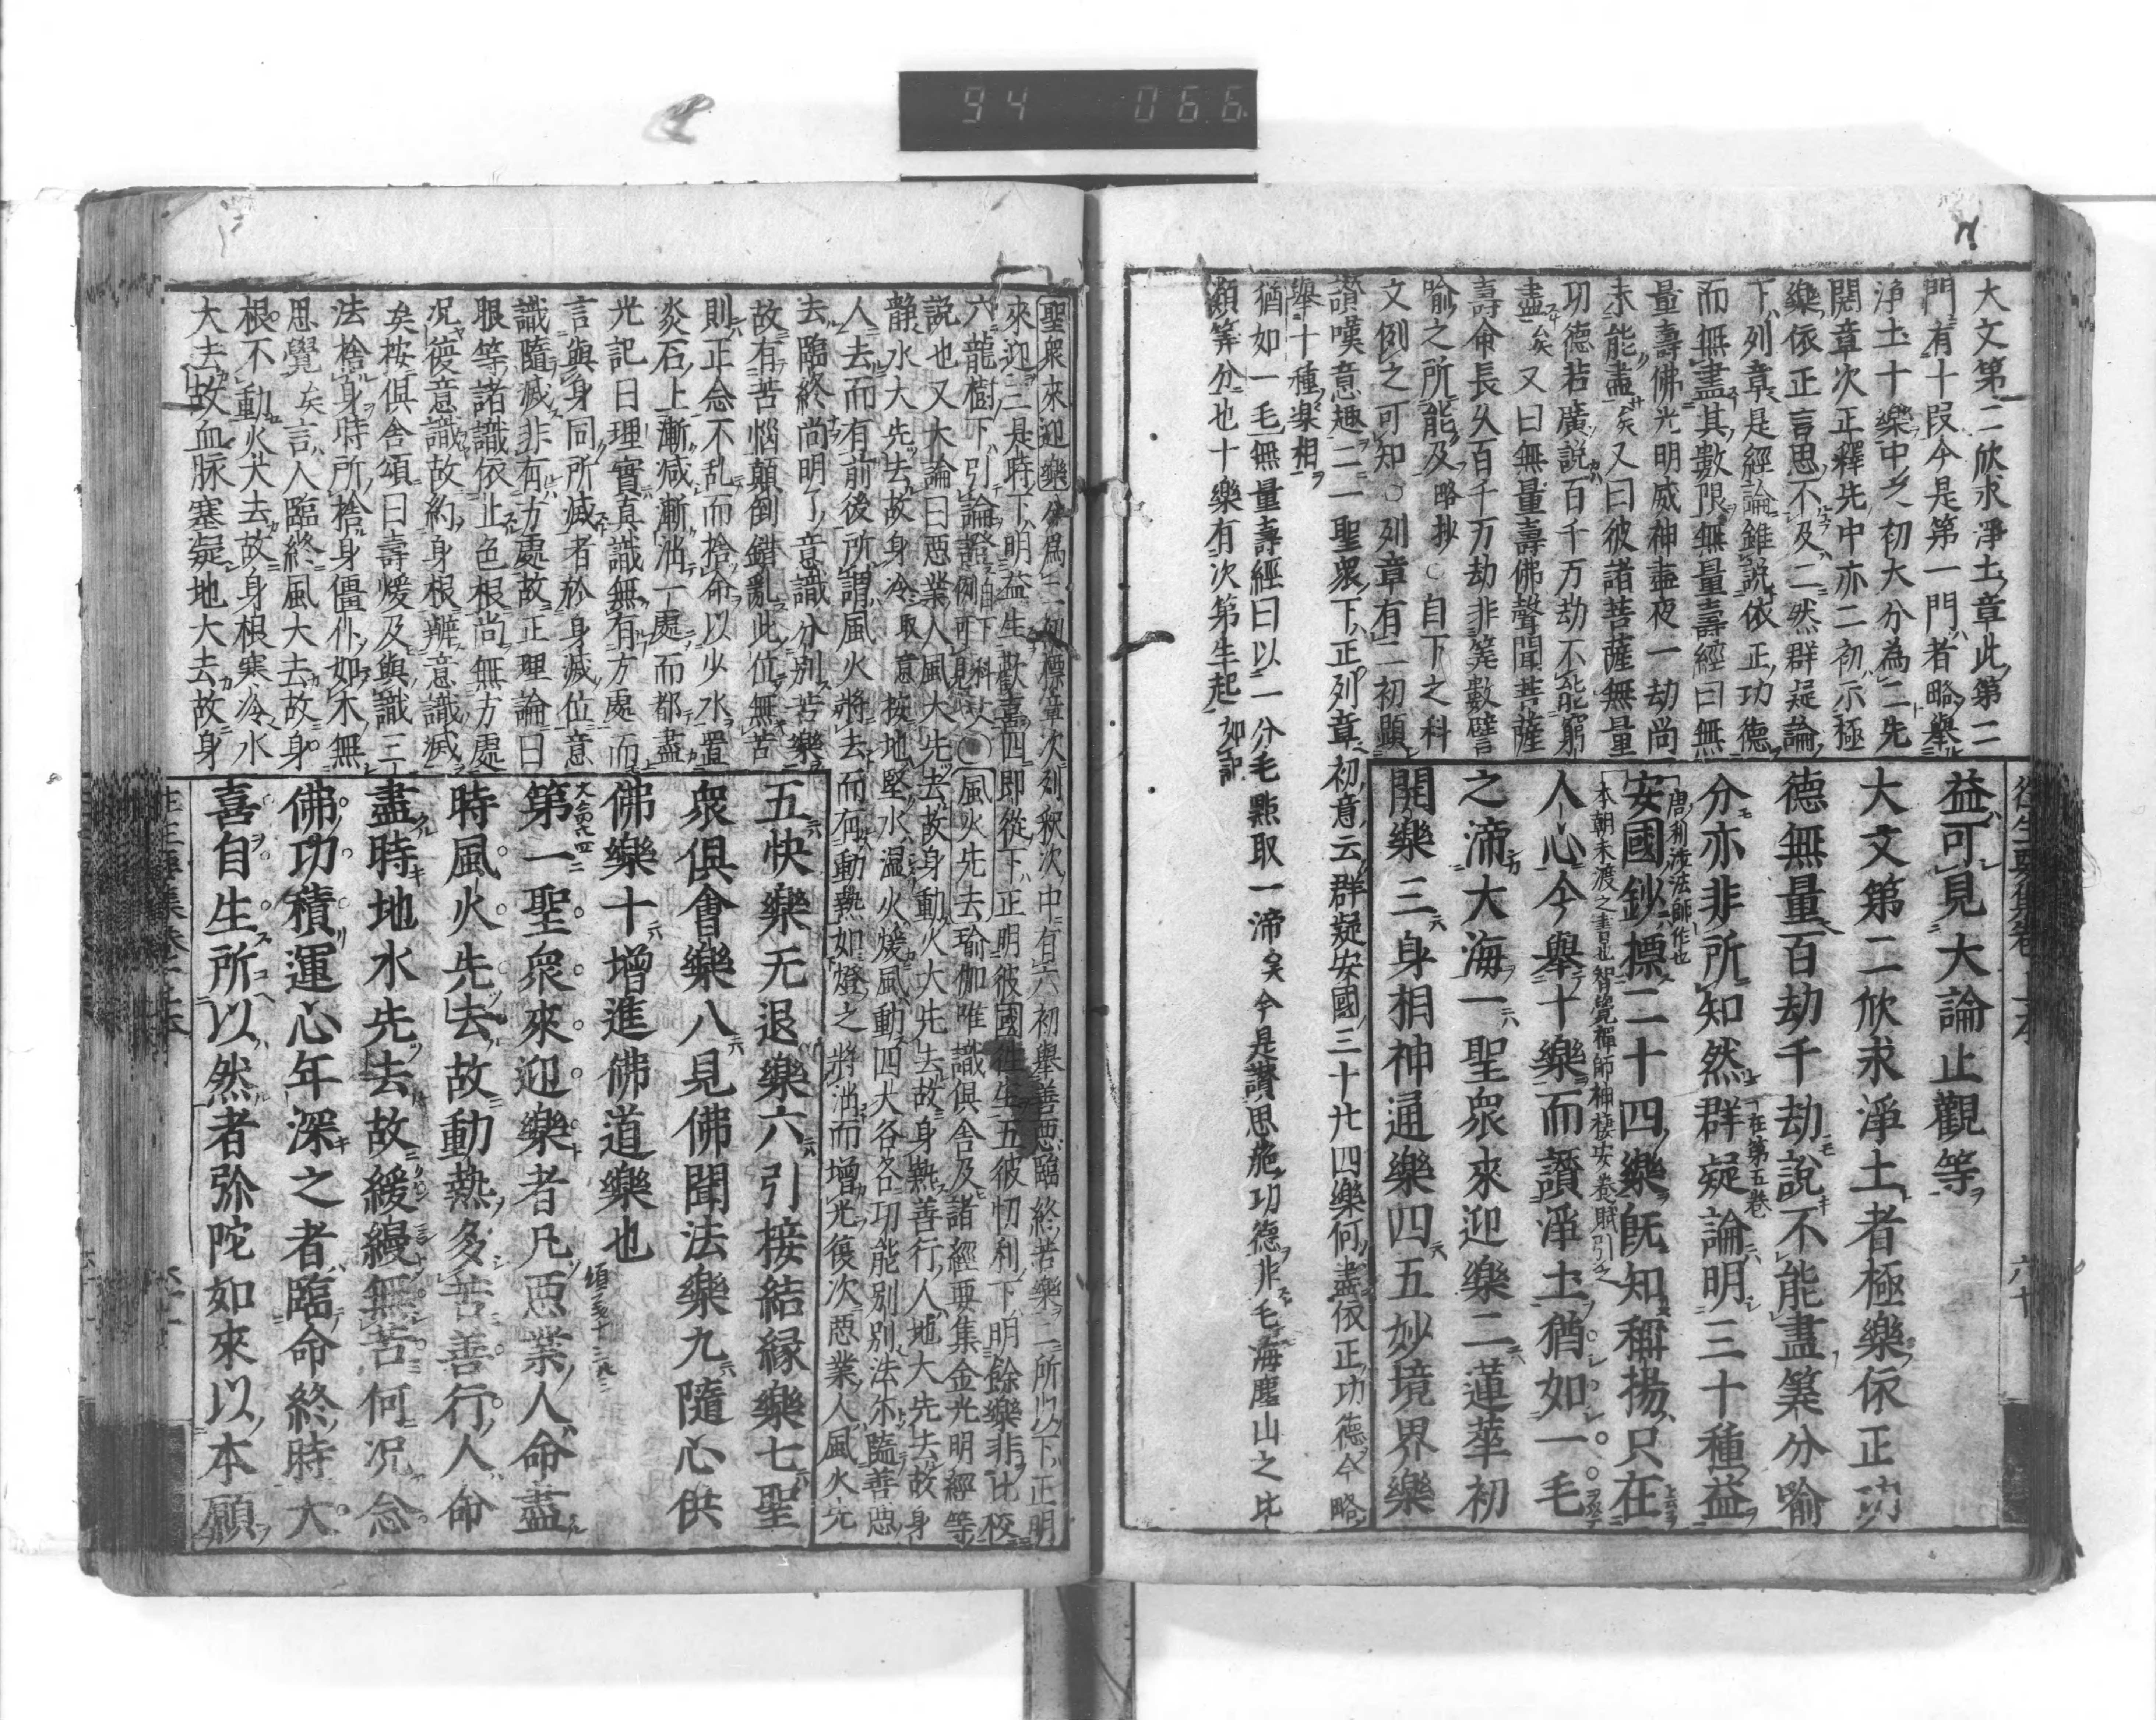 94 066
大文第二欣求淨土章此第二
門有十段今是第一門者略舉
淨土十樂中文初大分為二先
開章次正釋先中亦二初示極
樂依正言思不及二然群疑論
下列章是經論雖說依正功德
而無盡其數限無量壽經曰無
量壽佛光明威神晝夜一劫尚
未能盡矣又曰彼諸菩薩無量
功德若廣說百千万劫不能窮
盡矣又曰無量壽佛聲聞菩薩
壽命長久百千万劫非筭數譬
喻之所能及略抄○自下之科
文例之可知○列章有二初顯
讚嘆意趣二一聖衆下正列章初意云群疑安國三十廿四樂何盡依正功德今略
舉十種樂相
猶如一毛無量壽經曰以一分毛點取一渧矣今是讚思施功德非毛海塵山之比
類筭分也十樂有次第生起如記
往生要集卷上本 六十
益可見大論止觀等
大文第二欣求淨土者極樂依正功
德無量百劫千劫說不能盡筭分喻
分亦非所知然群疑論明三十種益
在第五卷
唐利渉法師作也
安國鈔標二十四樂既知稱揚只在
本朝未渡之書也智覺禪師神棲安養賦引之
人心今舉十樂而讚淨土猶如一毛
之渧大海一聖衆來迎樂二蓮華初
開樂三身相神通樂四五妙境界樂
聖衆來迎樂分爲二初標章次列釈次中有六初舉善惡臨終苦樂二所以下正明
來迎三是時下明益生歡喜四即從下正明彼國往生五彼忉利下明餘樂非比校
六龍樹下引論證自下科文例可見○風火先去瑜伽唯識俱舍及諸經要集金光明經等
說也又大論曰惡業人風大先去故身動火大先去故身熱善行人地大先去故身
靜水大先去故身冷取意按地堅水濕火煖風動四大各各功能別別法尔臨善惡
人去而有前後所謂風火將去而有動熱如燈之將消而增光復次惡業人風火先
去臨終尚明了意識分別苦樂
故有苦惱顛倒錯亂此位無苦
則正念不乱而捨命以少水置
炎石上漸減漸消一處而都盡
光記曰理實真識無有方處而
言與身同所滅者於身滅位意
識隨滅非有方處故正理論曰
眼等諸識依止色根尚無方處
况復意識故約身根辨意識滅
矣按俱舍頌曰壽煖及與識三
法捨身時所捨身僵仆如木無
思覺矣言人臨終風大去故身
根不動火大去故身根寒冷水
大去故血脉塞凝地大去故身
五快樂无退樂六引接結縁樂七聖
衆俱會樂八見佛聞法樂九隨心供
佛樂十增進佛道樂也
第一聖衆來迎樂者凡惡業人命盡
時風火先去故動熱多苦善行人命
盡時地水先去故緩縵無苦何况念
佛功積運心年深之者臨命終時大
喜自生所以然者弥陀如來以本願